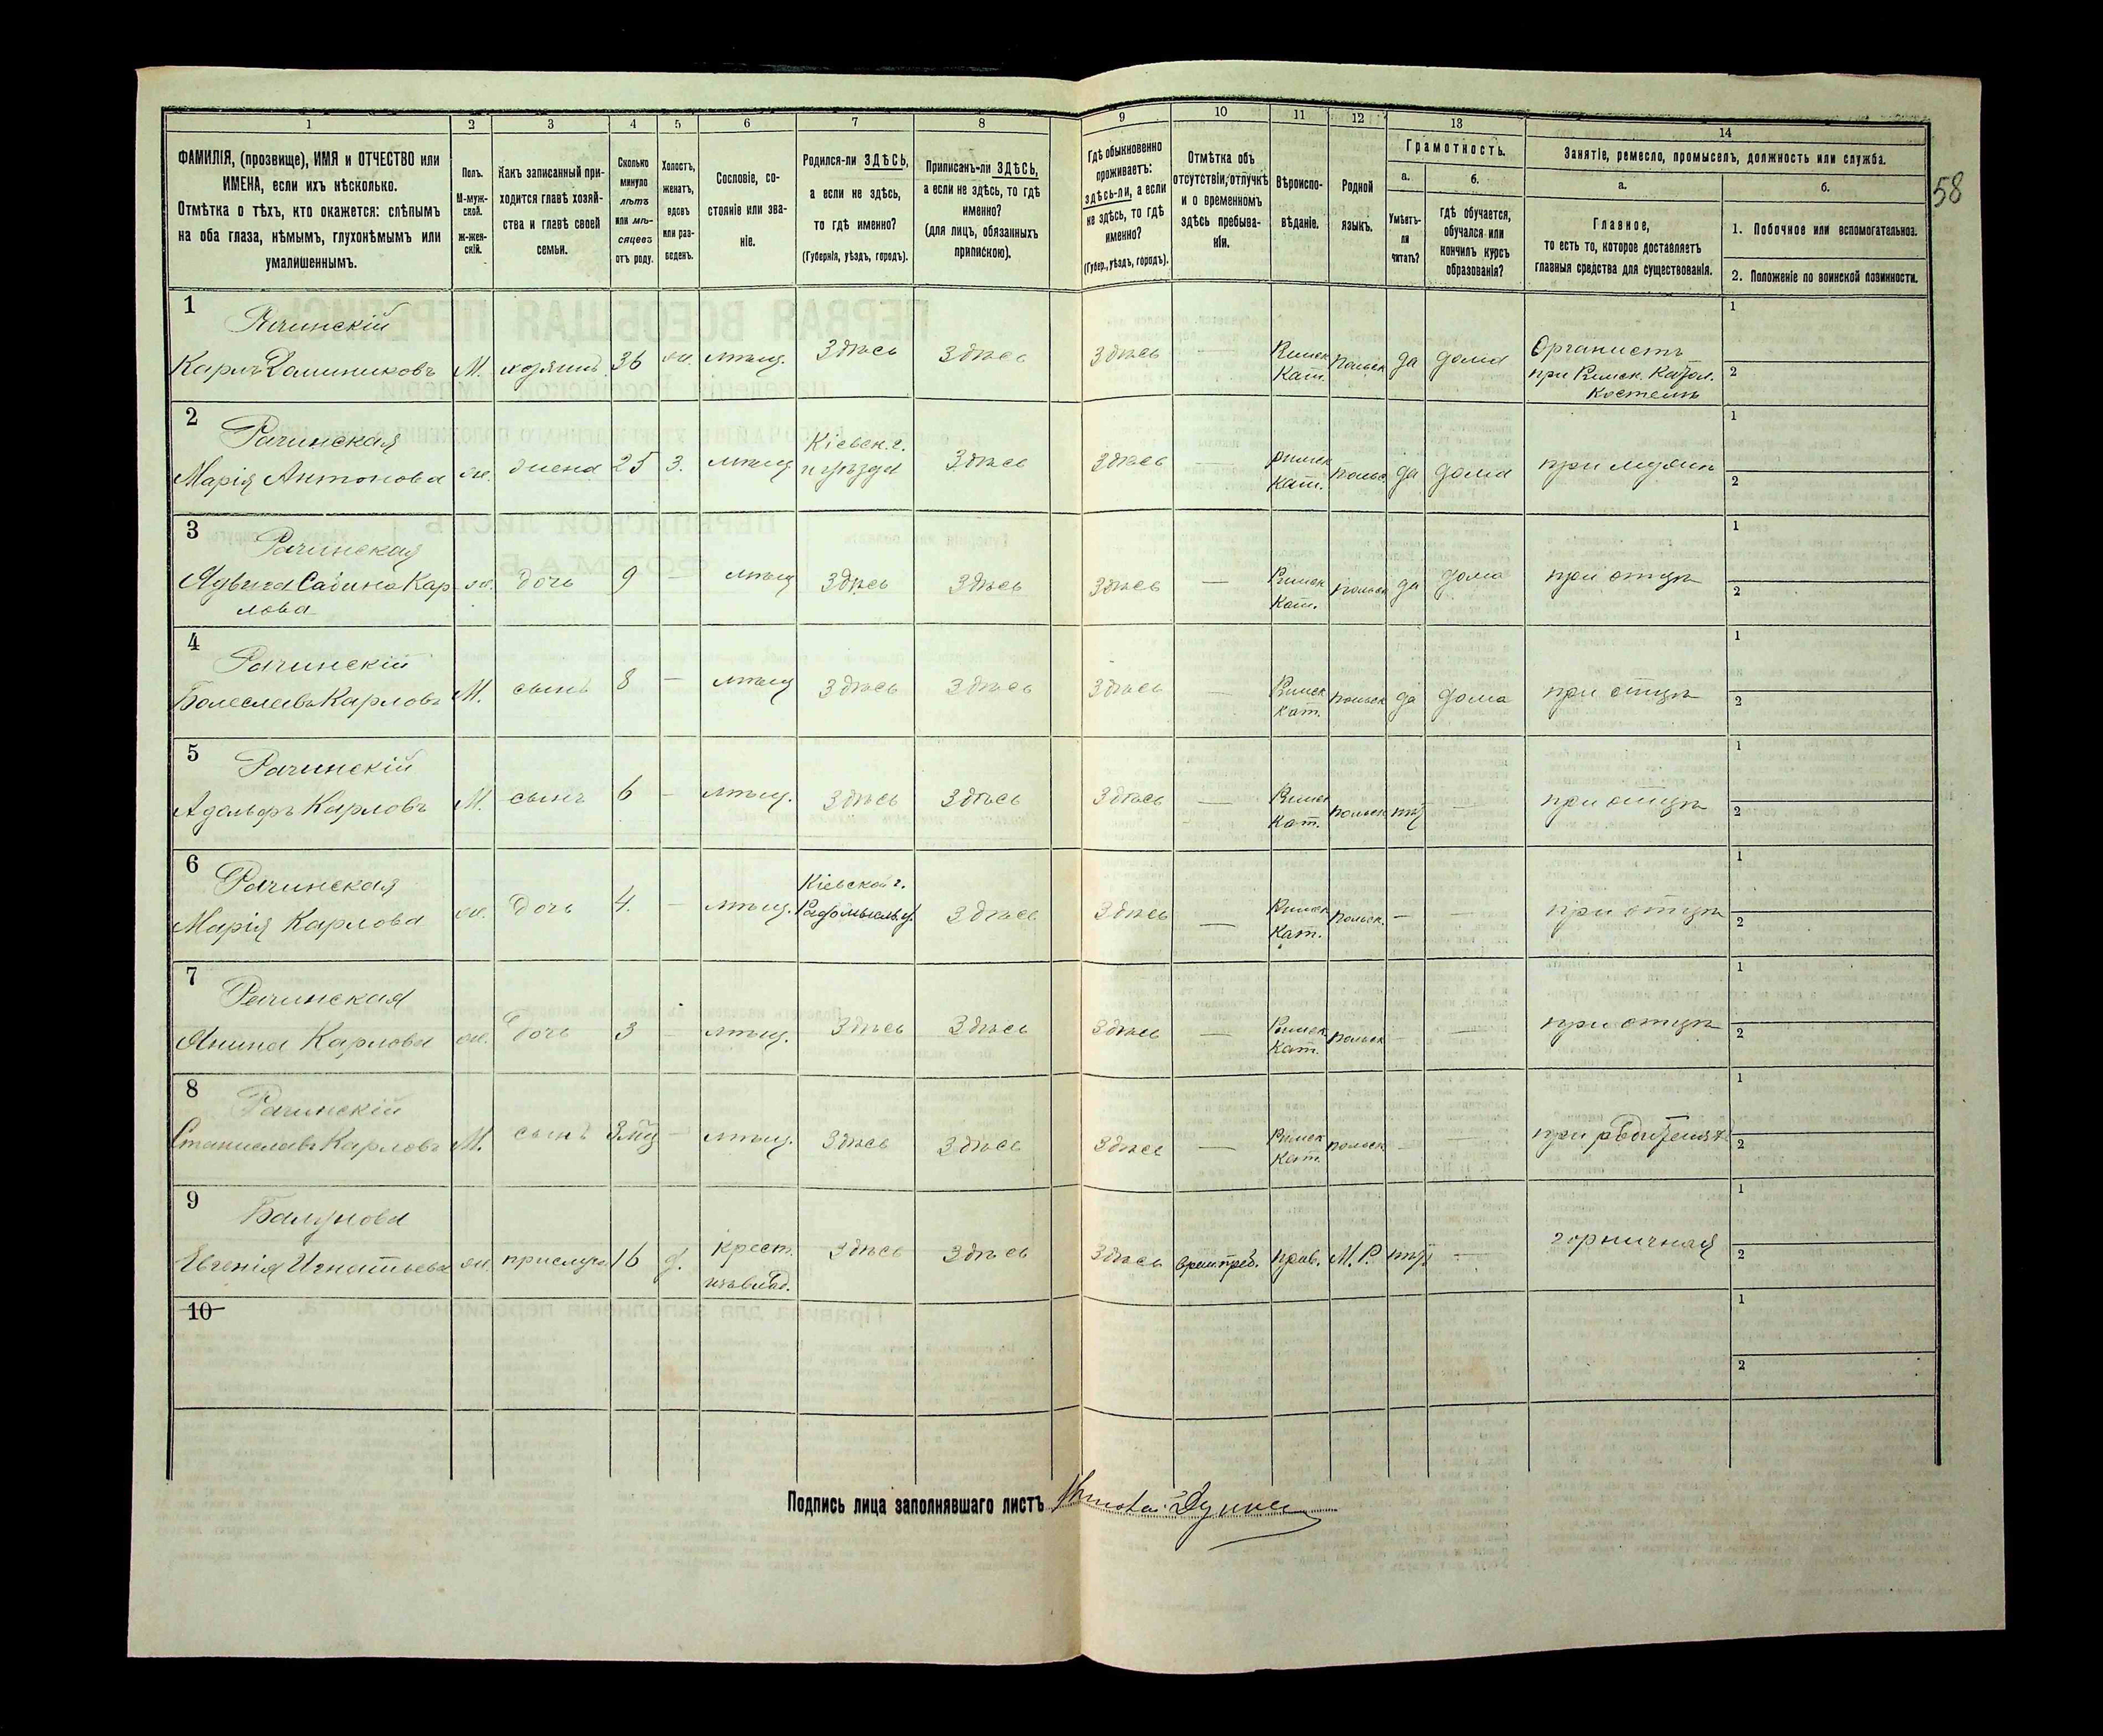 1 2 3 4 5 6 7 8 9 10 11 12 13 14
58
ФАМИЛІЯ, (прозвище), ИМЯ и ОТЧЕСТВО или
ИМЕНА, если ихъ нѣсколько.
Отмѣтка о тѣхъ, кто окажется: слѣпымъ
на оба глаза, нѣмымъ, глухонѣмымъ или
умалишеннымъ.
Полъ.
М-муж-
ской.
Ж-жен-
скій.
Какъ записанный при-
ходится главѣ хозяй-
ства и главѣ своей
семьи.
Сколько
минуло
лѣтъ
или мѣ-
сяцевъ
отъ роду.
Холостъ,
женатъ,
вдовъ
или раз-
веденъ.
Сословіе, со-
стояніе или зва-
ніе.
Родился-ли ЗДѢСЬ,
а если не здѣсь,
то гдѣ именно?
(Губернія, уѣздъ, городъ).
Приписанъ-ли ЗДѢСЬ,
а если не здѣсь, то гдѣ
именно?
(для лицъ, обязанныхъ
припискою).
Гдѣ обыкновенно
проживаетъ:
здѣсь-ли, а если
не здѣсь, то гдѣ
именно?
(Губер., уѣздъ, городъ).
Отмѣтка объ
отсутствіи, отлучкѣ
и о временномъ
здѣсь пребыва-
ніи.
Вѣроиспо-
вѣданіе.
Родной
языкъ.
Грамотность.
а.
Умѣетъ-
ли
читать?
б.
гдѣ обучается,
обучался или
кончилъ курсъ
образованія?
Занятіе, ремесло, промыселъ, должность или служба.
а.
Главное,
то есть то, которое доставляетъ
главныя средства для существованія.
б.
1. Побочное или вспомогательное.
2. Положеніе по воинской повинности.
1
Рачинскій
Карлъ Доминиковъ М. 36 мѣщ. Здѣсь Здѣсь Здѣсь — Римск Кат. польск да дома
Органистъ
при Римск. Катол.
Костелѣ
1
2
2
Рачинская
Марія Антонова ж. жена 25 з. мѣщ Кіевск. г. Здѣсь Здѣсь — Римск Кат. польс. да дома при мужѣ
1
2
3
Рачинская
Ядвига Сабина Кар
лова
ж. дочь 9 — мѣщ Здѣсь Здѣсь Здѣсь — Римск Кат. польск да дома при отцѣ
1
2
4
Рачинскій
Болеславъ Карловъ М. сынъ 8 — мѣщ Здѣсь Здѣсь Здѣсь — Римск Кат. польск да дома при отцѣ
1
2
5
Рачинскій
Адольфъ Карловъ М. сынъ 6 — мѣщ. Здѣсь Здѣсь Здѣсь — Римск Кат. польск — при отцѣ
1
2
6
Рачинская
Марія Карлова ж. дочь 4. — мѣщ. Кіевской г. Радомысль. у. Здѣсь Здѣсь — Римск Кат. польск. — — при отцѣ
1
2
7
Рачинская
Янина Карлова ж. дочь 3 — мѣщ. Здѣсь Здѣсь Здѣсь — Римск Кат. польск — — при отцѣ
1
2
8
Рачинскій
Станиславъ Карловъ М. сынъ 3 мц — мѣщ. Здѣсь Здѣсь Здѣсь — Римск Кат. польск — — при родителяхъ
1
2
9
Евгенія Игнатьева ж. прислуга 16 д. крест. Здѣсь Здѣсь Здѣсь прав. М. Р. — горничная
1
2
10
1
2
Подпись лица заполнявшаго листъ